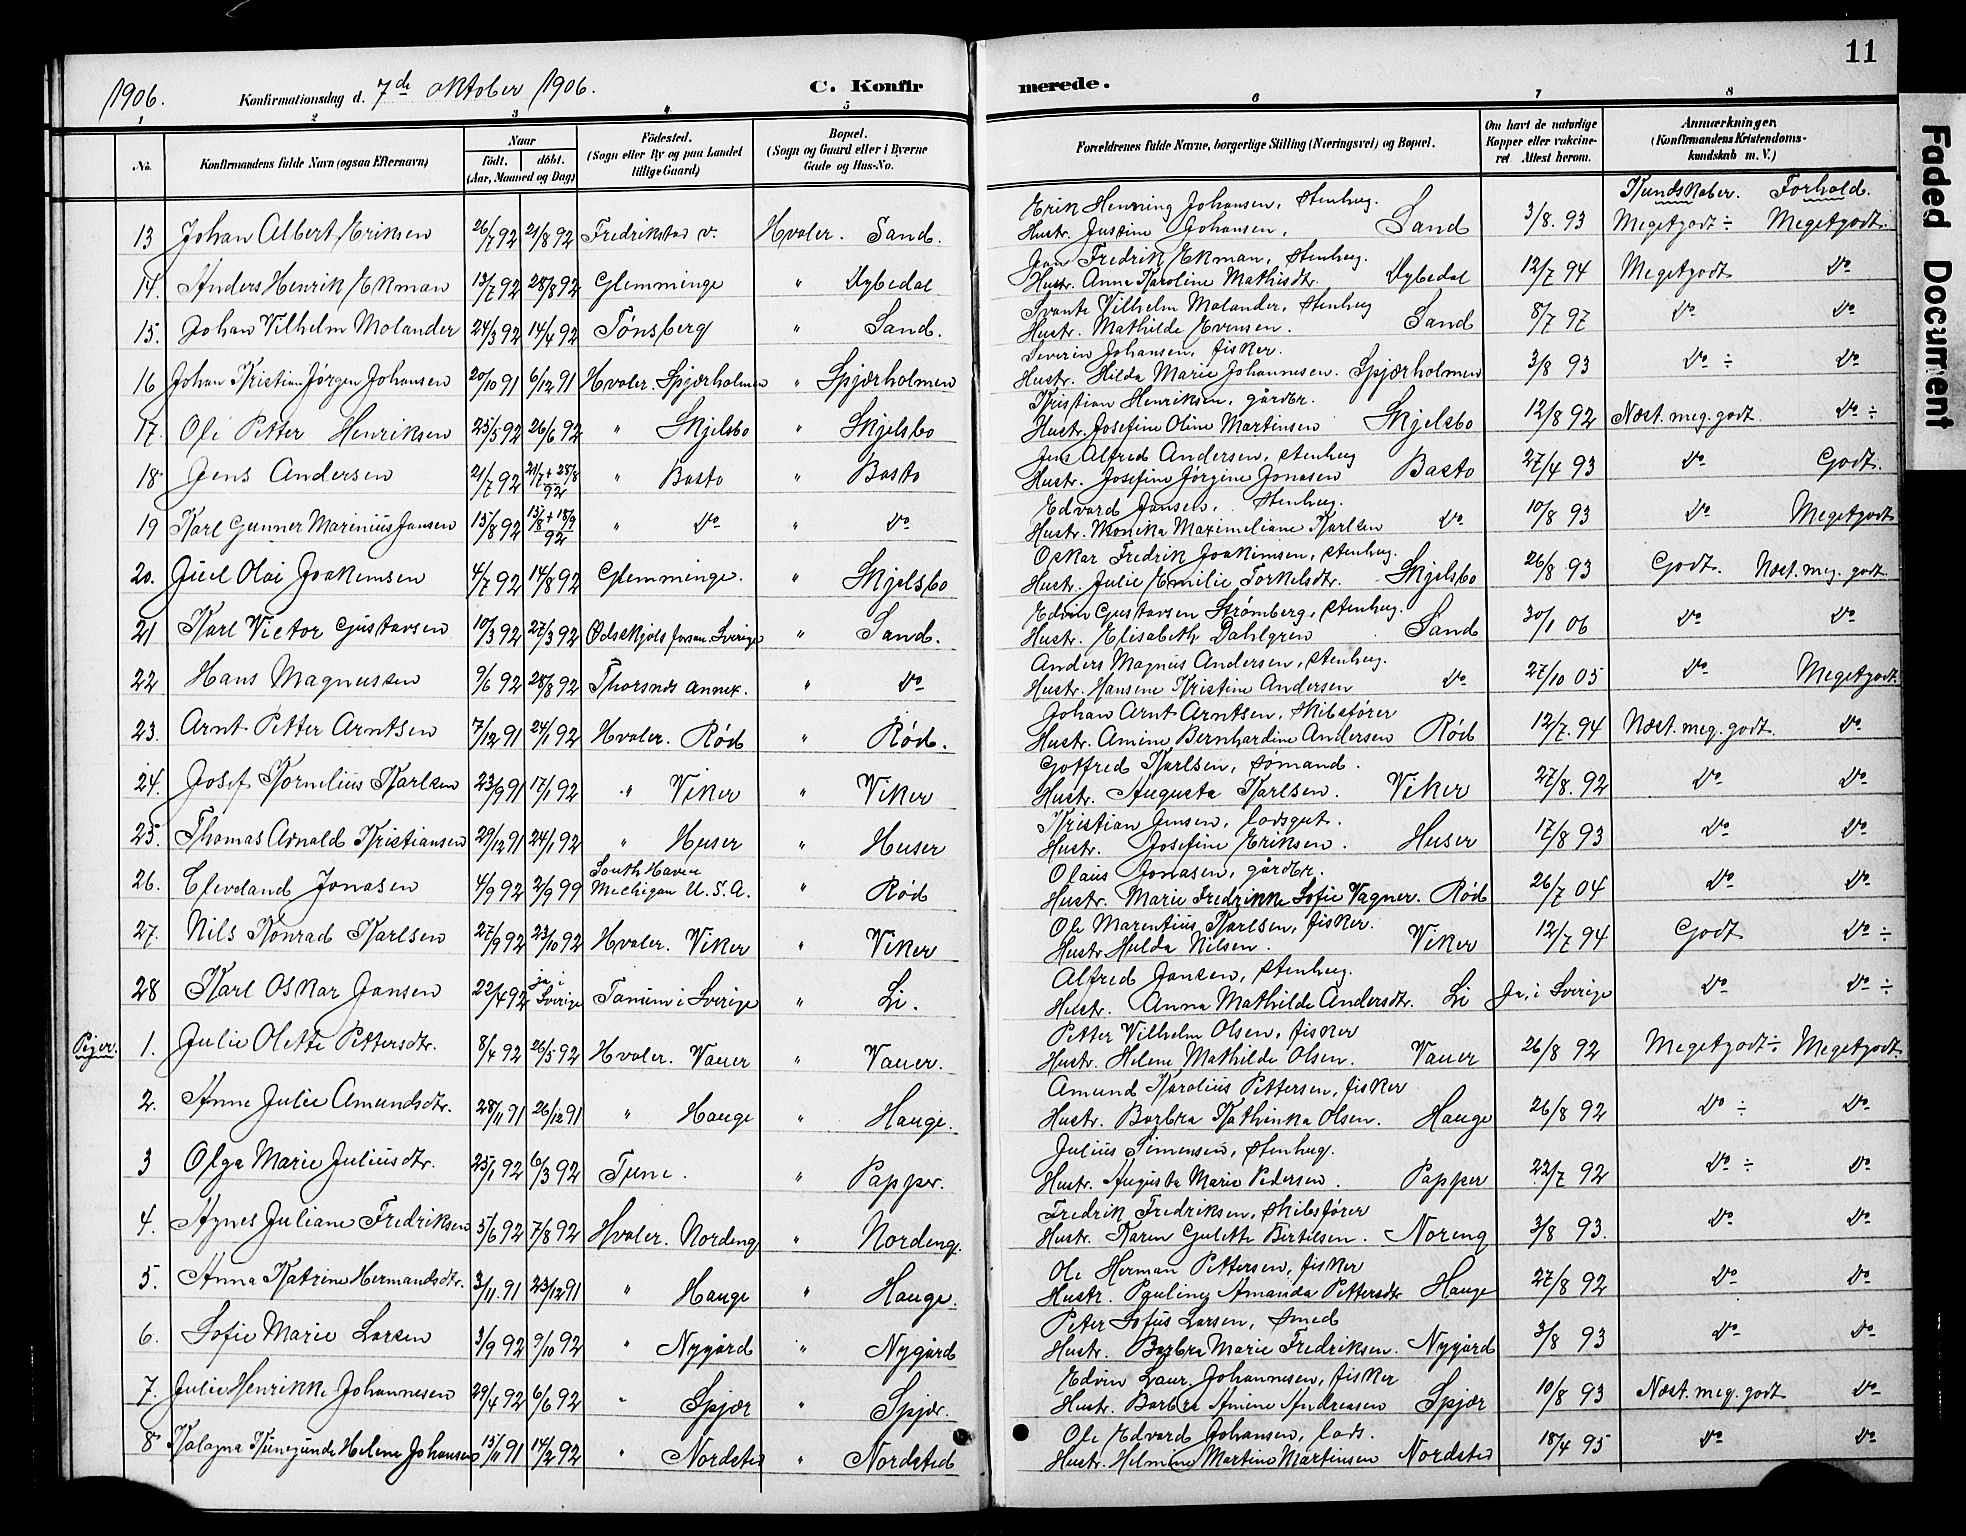 11
1906. Konfirmationsdag d. 7de oktober 1906. C. Konfir merede.
1 2 3 4 5 6 7 8
No. Konfirmandens fulde Navn (ogsaa Efternavn) Naar født. døbt. (Aar, Maaned og Dag) Fødested. (Sogn eller By og paa Landet tillige Gaard) Bopæl. (Sogn og Gaard eller i Byerne Gade og Hus-No. Forældrenes fulde Navne, borgerlige Stilling (Næringsvei) og Bopæl. Om havt de naturlige Kopper eller vakcineret Attest herom. Anmærkninger. (Konfirmandens Kristendomskundskab m. V.)
Kundskaber. Forhold.
Erik Henning Johansen, Stenhug.
13 Johan Albert Eriksen 26/7 92 21/8 92 Fredrikstad v. Hvaler. Sand. Hustr. Justine Johansen, Sand 3/8. 93 Megetgodt ÷ Megetgodt.
Jan Fredrik Ekman, Stenhug.
14. Anders Henrik Ekman 13/7 92 28/8 92 Glemminge " Dybedal Hustr. Anna Karoline Mathisdtr. Dybedal 12/7 94 Megetgodt do
Svante Vilhelm Molander, Stenhug
15. Johan Vilhelm Molander 24/3 92 14/4 92 Tønsberg " Sand. Hustr. Mathilde Evensen. Sand 8/7 97 do do
Severin Johansen, fisker.
16 Johan Kristian Jørgen Johansen 20/10 91 6/12 91 Hvaler. Spjærholmen " Spjærholmen Hustr. Hilda Marie Johannesen. Spjærholmen 3/8 93 do ÷ do
Kristian Henriksen, gårdbr.
17. Ole Petter Henriksen 25/5 92 26/6 92 " Skjelsbo " Skjelsbo Hustr. Josefine Oline Martinsen Skjelsbo 12/8 92 Næst. meg. godt. do ÷
Jens Alfred Andersen, Stenhug
18. Jens Andersen 21/7 92 21/7 + 28/8 92 " Basto " Basto Hustr. Josefine Jørgine Jonasen Basto 27/4 93 do Godt.
Edvard Jansen, Stenhug.
19 Karl Gunner Marinius Jansen 15/8 92 15/8 + 18/9 92 " do " do Hustr. Monika Maximeliane Karlsen do 10/8 93 do Megetgodt
Oskar Fredrik Joakimsen, Stenhug.
20. Juel Olai Joakimsen 4/7 92 14/8 92 Glemminge. " Skjelsbo Hustr. Julie Emilie Torkelsdtr. Skjelsbo 26/8 93 Godt. Næst. meg. godt
Edvin Gustavsen Strømberg, Stenhug.
21 Karl Victor Gustavsen 10/3 92 27/3 92 Ødsekjøls forsam. Sverige " Sand. Hustr. Elisabeth Dahlgren Sand 30/1 06 do do
Anders Magnus Andersen, Stenhug.
22 Hans Magnussen 9/6 92 28/8 92 Thorsnes annex. " do Hustr. Hansene Kristine Andersen do 27/10 05 do Megetgodt.
Johan Arnt Arntsen, Skibsfører
23. Arnt Petter Arntsen 7/12 91 24/1 92 Hvaler. Rød " Rød. Hustr. Amine Bernhardine Andersen Rød 12/7. 94 Næst. meg. godt do
Gotfred Karlsen, Sømand.
24. Josef Kornelius Karlsen 23/9 91 17/1 92 " Viker " Viker Hustr. Augusta Karlsen. Viker 27/8. 92 do do
Kristian Jensen, lodsgut.
25. Thomas Arnold Kristiansen 29/12 91 24/1 92 " Huser " Huser Hustr. Josefine Eriksen. Huser 17/8 93 do do
Olaus Jonasen, gårdbr.
26. Cleveland Jonasen 4/9 92 2/9 99 South Haven Michigan U.S.A. " Rød Hustr. Marie Fredrikke Sofie Vagner. Rød 26/7 04 do do
Ole Marentius Karlsen, fisker.
27. Nils Konrad Karlsen 27/9 92 23/10 92 Hvaler. Viker " Viker Hustr. Hulda Nilsen. Viker 12/7 94 Godt do ÷
Alfred Jansen, Stenhug.
28 Karl Oskar Jansen 22/4 92 ja i Sverige Tanum i Sverige " Li. Hustr. Anna Mathilde Andersdtr. Li Ja, i Sverige do do ÷
Petter Vilhelm Olsen, fisker
Piger. 1. Julie Olette Pettersdtr. 8/4 92 26/5 92 Hvaler. Vauer " Vauer. Hustr. Helene Mathilde Olsen. Vauer 26/8 92 Megetgodt ÷ Megetgodt
Amund Karolius Pettersen, fisker
2. Anne Julie Amundsdtr. 28/11 91 26/12 91 " Hauge " Hauge. Hustr. Barbra Kathinka Olsen. Hauge 26/8 92 do ÷ do
Julius Simensen, Stenhug.
3 Olga Marie Juliusdtr. 25/1 92 6/3 92 Tune. " Papper. Hustr. Augusta Marie Pedersen. Papper 22/7 92 do ÷ do
Fredrik Fredriksen, Skibsfører
4. Agnes Juliane Fredriksen 5/6 92 7/8 92 Hvaler. Nordeng " Nordeng. Hustr. Karen Gulette Bertilsen. Noreng 3/8 93. do do
Ole Herman Pettersen, fisker
5. Anna Katrine Hermandsdtr. 3/11. 91 23/12 91 " Hauge " Hauge. Hustr. Pauline Amanda Pettersdtr Hauge 27/8 92 do do
Peter Sofus Larsen, Smed
6. Sofie Marie Larsen 3/9 92 9/10 92 " Nygård " Nygård Hustr. Barbra Marie Fredriksen. Nygård 3/8 93 do do
Edvin Laur. Johannesen, fisker
7. Julie Henrikke Johannesen 29/4 92 6/6 92 " Spjær " Spjær. Hustr. Barbra Amine Andreasen Spjær 10/8 93 Næst. meg. godt do
Ole Edvard Johansen, lods.
8 Kalagna Kunegunde Helene Johansen 15/11 91 14/2 92 " Nordsted " Nordsted Hustr. Helmine Martine Martinsen Nordsted 18/4 95 do do
Faded Document